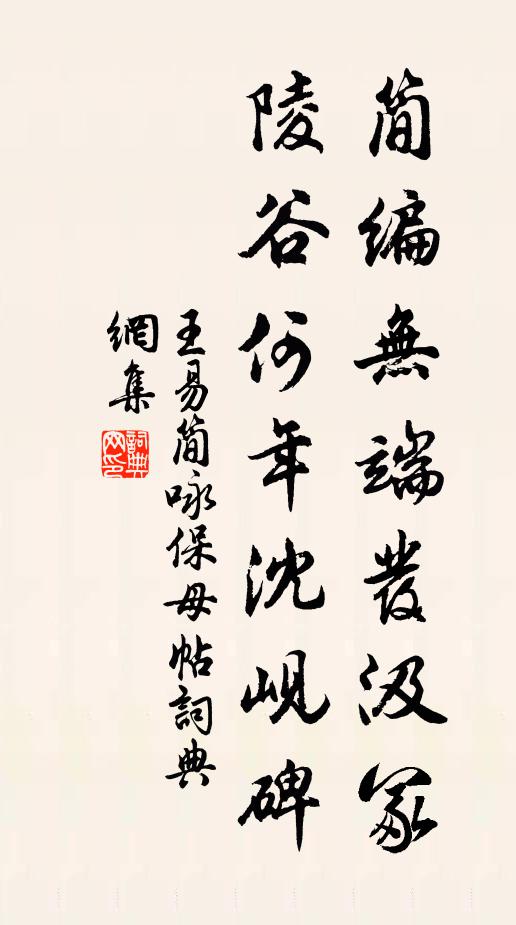 簡編無端發汲冢
陵谷何年沈峴碑
王易簡咏保母帖詞典
網集
詞典網印